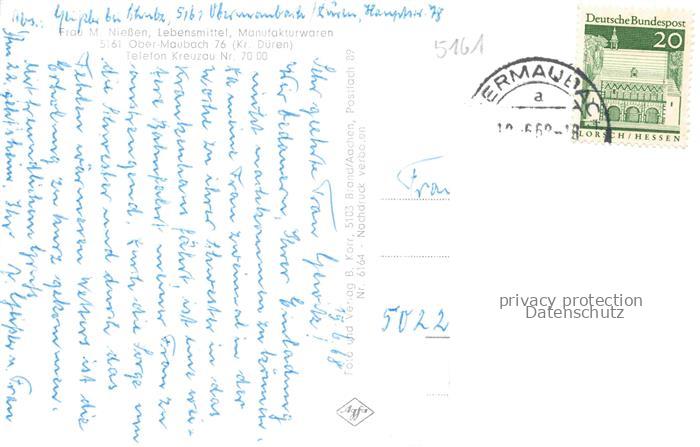 Abs. Geipler bei Schulz, 5161 Obermaubach/Düren, Hauptstr. 78
Frau M. Nießen, Lebensmittel, Manufakturwaren
5161 Ober-Maubach 76 (Kr. Düren)
Telefon Kreuzau Nr. 70 00
19.6.68
Sehr geehrte Frau
Wir bedauern, Ihrer Einladung
nicht nachkommen zu können.
Da meine Frau zweimal in der
Woche zu ihrer Schwester in das
Krankenhaus fährt, ist eine wei-
tere Bahnfahrt meiner Frau zu
anstrengend. Durch die Sorge um
die Schwester und durch das
Fehlen wärmeren Wetters ist die
Erholung zu kurz gekommen.
Mit freundlichem Gruß
Ihr u. Frau
Foto und Verlag B. Korr, 5103 Brand/Aachen, Postfach 89
Nr. 6164 - Nachdruck verboten
Agfa
5161
ERMAUBAC
a
6.68-18
Deutsche Bundespost
20
LORSCH/HESSEN
Frau
5022
privacy protection
Datenschutz